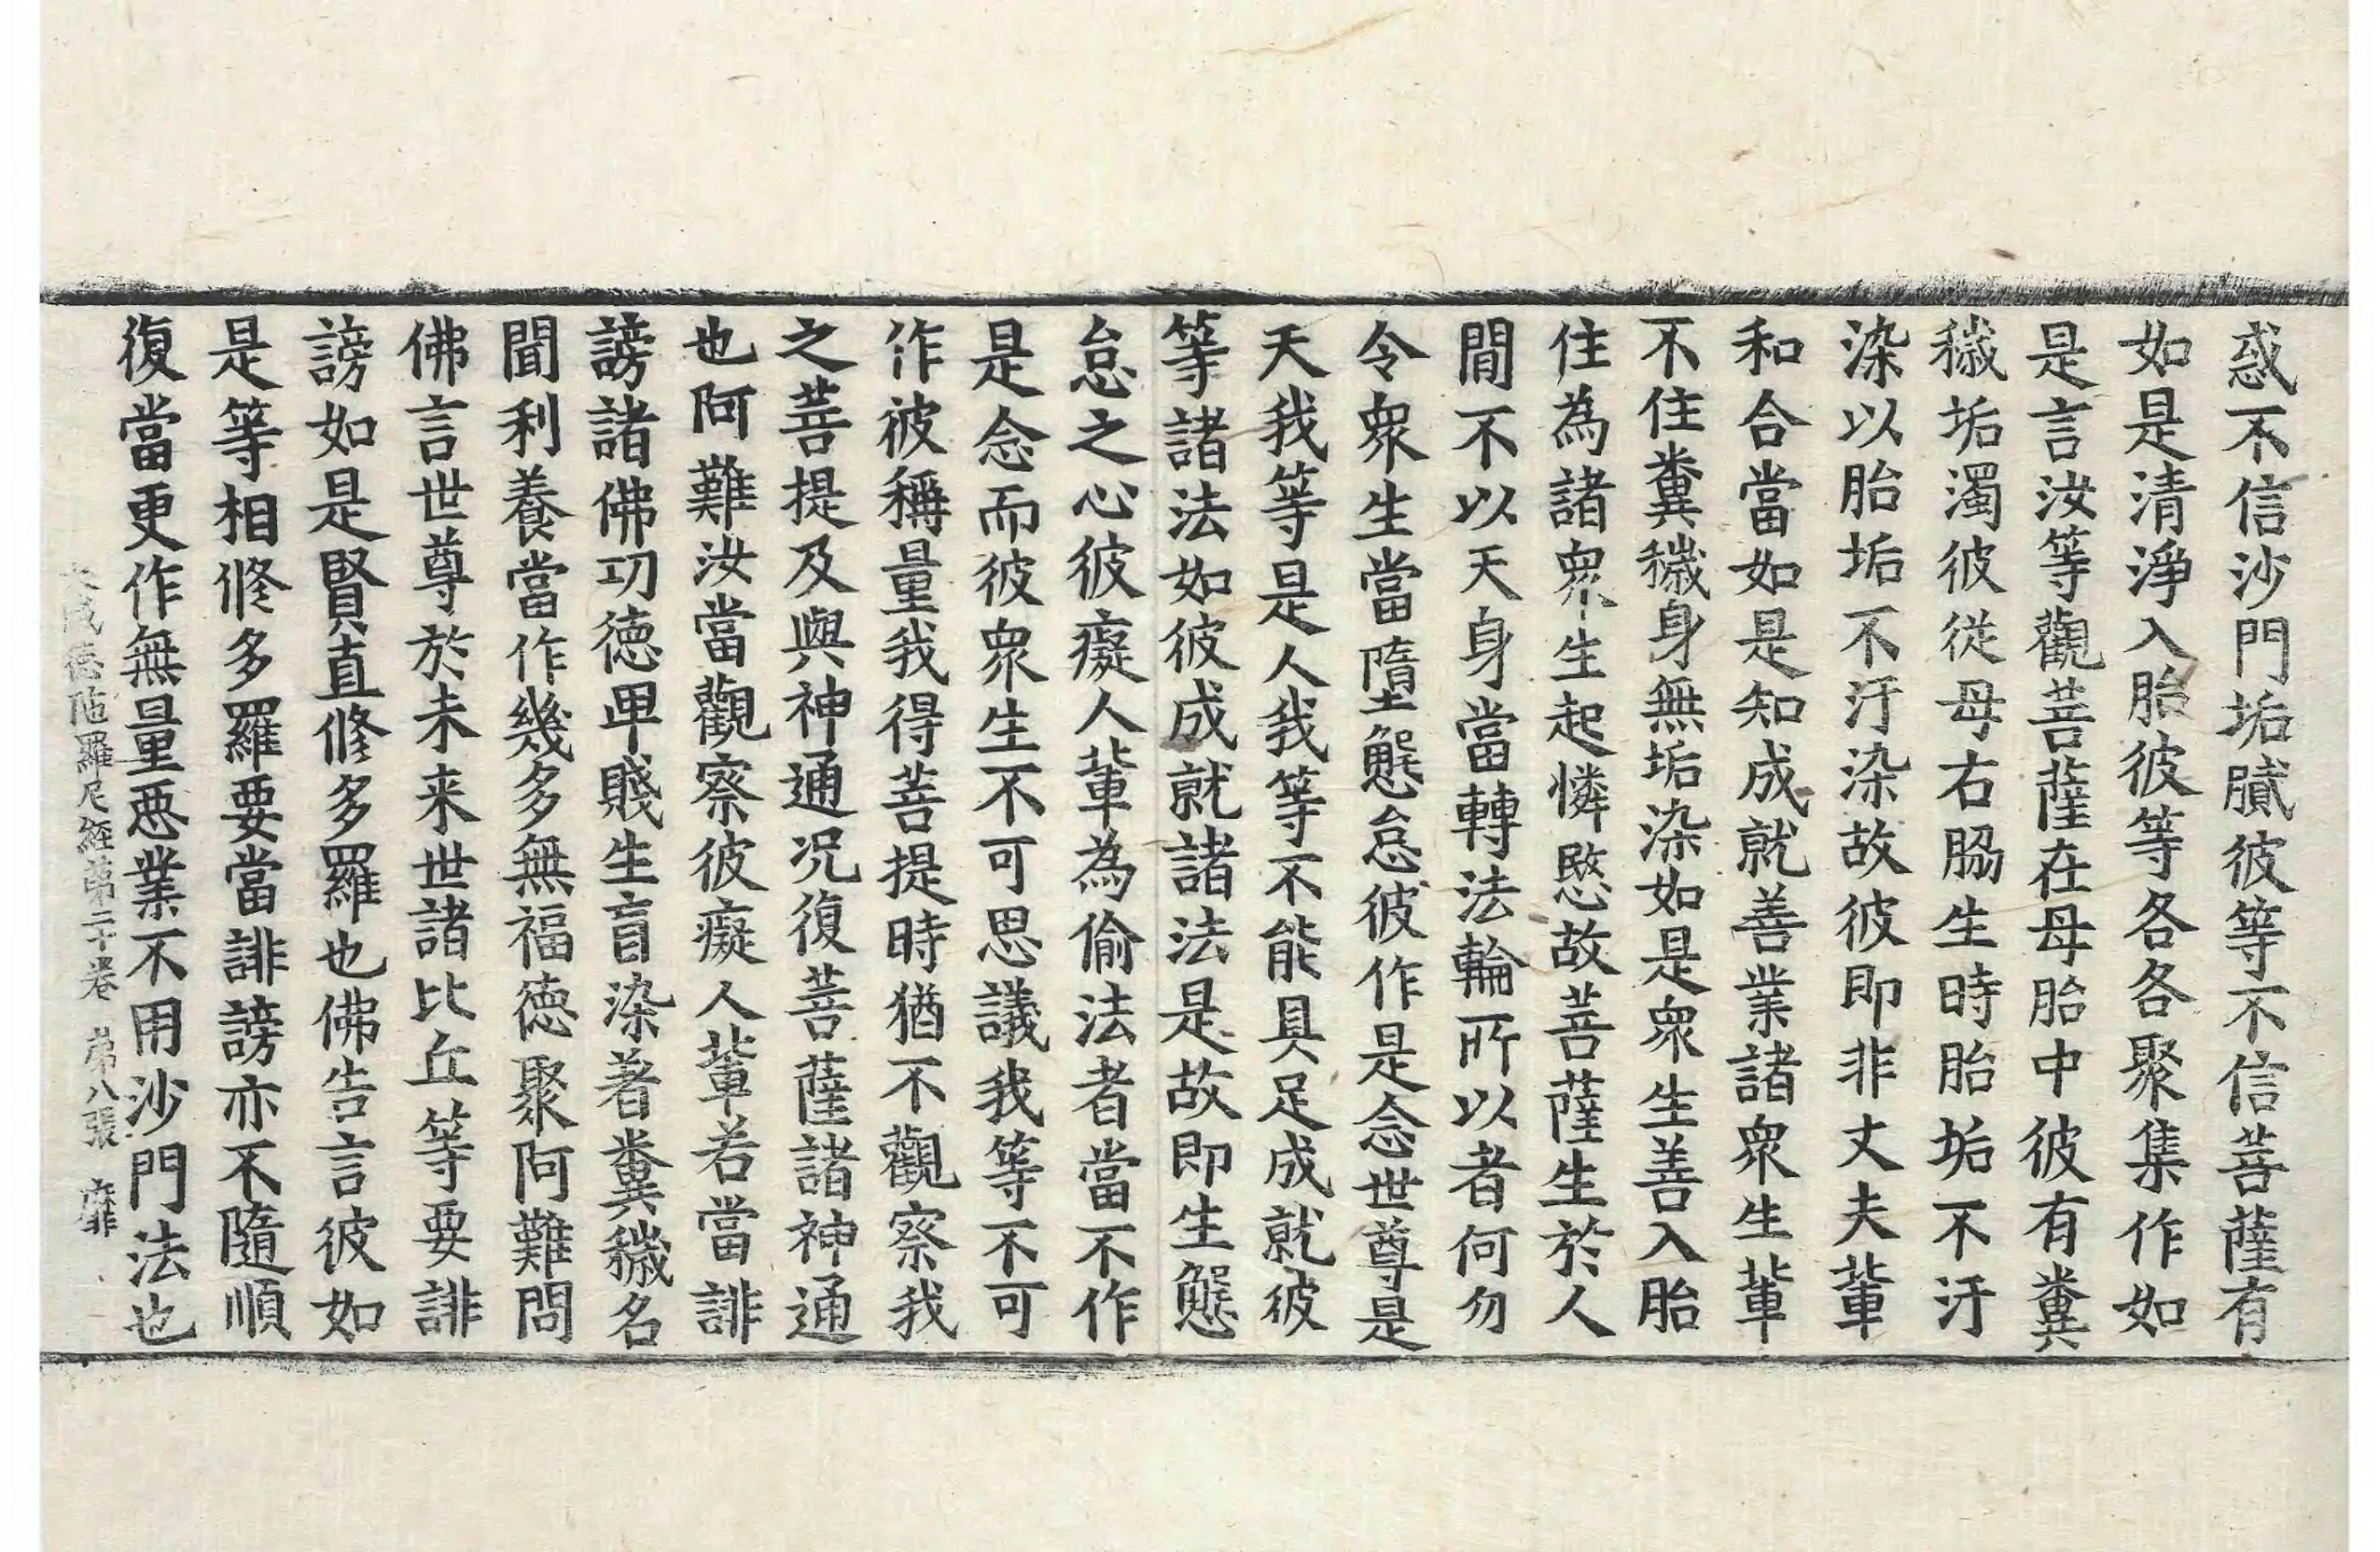 惑不信沙門垢膩彼等不信菩薩有
如是清淨入胎彼等各各聚集作如
是言汝等觀菩薩在母胎中彼有糞
穢垢濁彼從母右脇生時胎垢不汙
染以胎垢不汙染故彼即非丈夫輩
和合當如是知成就善業諸衆生輩
不住糞穢身無垢染如是衆生善入胎
住為諸衆生起憐愍故菩薩生於人
閒不以天身當轉法輪所以者何勿
令衆生當墮懈怠彼作是念世尊是
天我等是人我等不能具足成就彼
等諸法如彼成就諸法是故即生懈
怠之心彼癡人輩為偷法者當不作
是念而彼衆生不可思議我等不可
作彼稱量我得菩提時猶不觀察我
之菩提及與神通况復菩薩諸神通
也阿難汝當觀察彼癡人輩若當誹
謗諸佛功德卑賤生盲染著糞穢名
聞利養當作幾多無福德聚阿難問
佛言世尊於未来世諸比丘等要誹
謗如是賢直修多羅也佛告言彼如
是等相修多羅要當誹謗亦不隨順
復當更作無量惡業不用沙門法也
大威德陁羅尼經第二十卷 第八張 靡